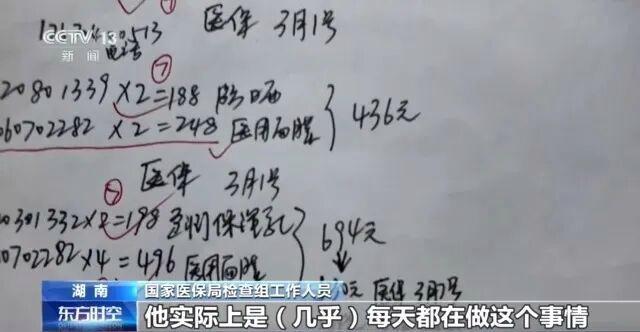 CCTV 13
新闻
医保 3月1号
⑦
20801339×2=188 防晒
60702282×2=248 医用面膜 436元
医保 3月1号
0301332×2=198
0702282×4=496 医用面膜 694元
医保
湖南 国家医保局检查组工作人员
东方时空 他实际上是（几乎）每天都在做这个事情